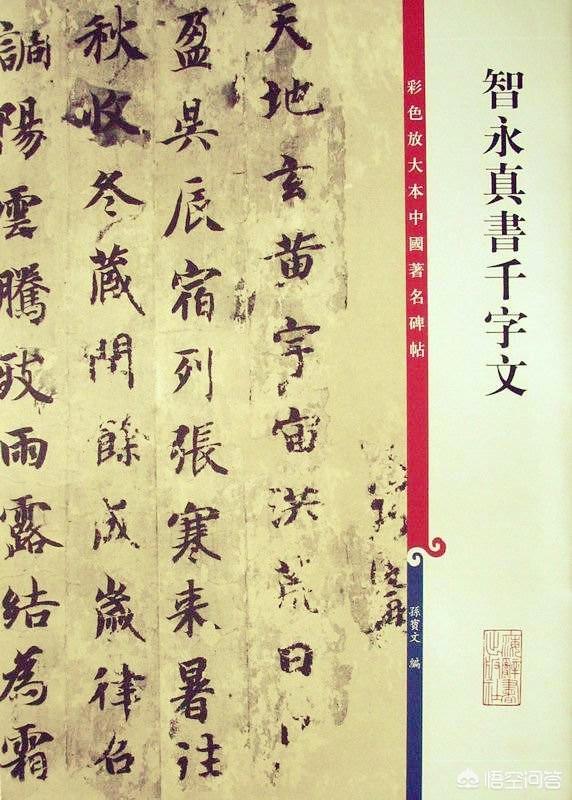 智永真書千字文
上海辭書出版社
彩色放大本中國著名碑帖
孫寶文 編
天地玄黄宇宙洪荒日
盈昃辰宿列張寒来暑往
秋收冬藏閏餘成歲律召
調陽雲騰致雨露結為霜
悟空问答